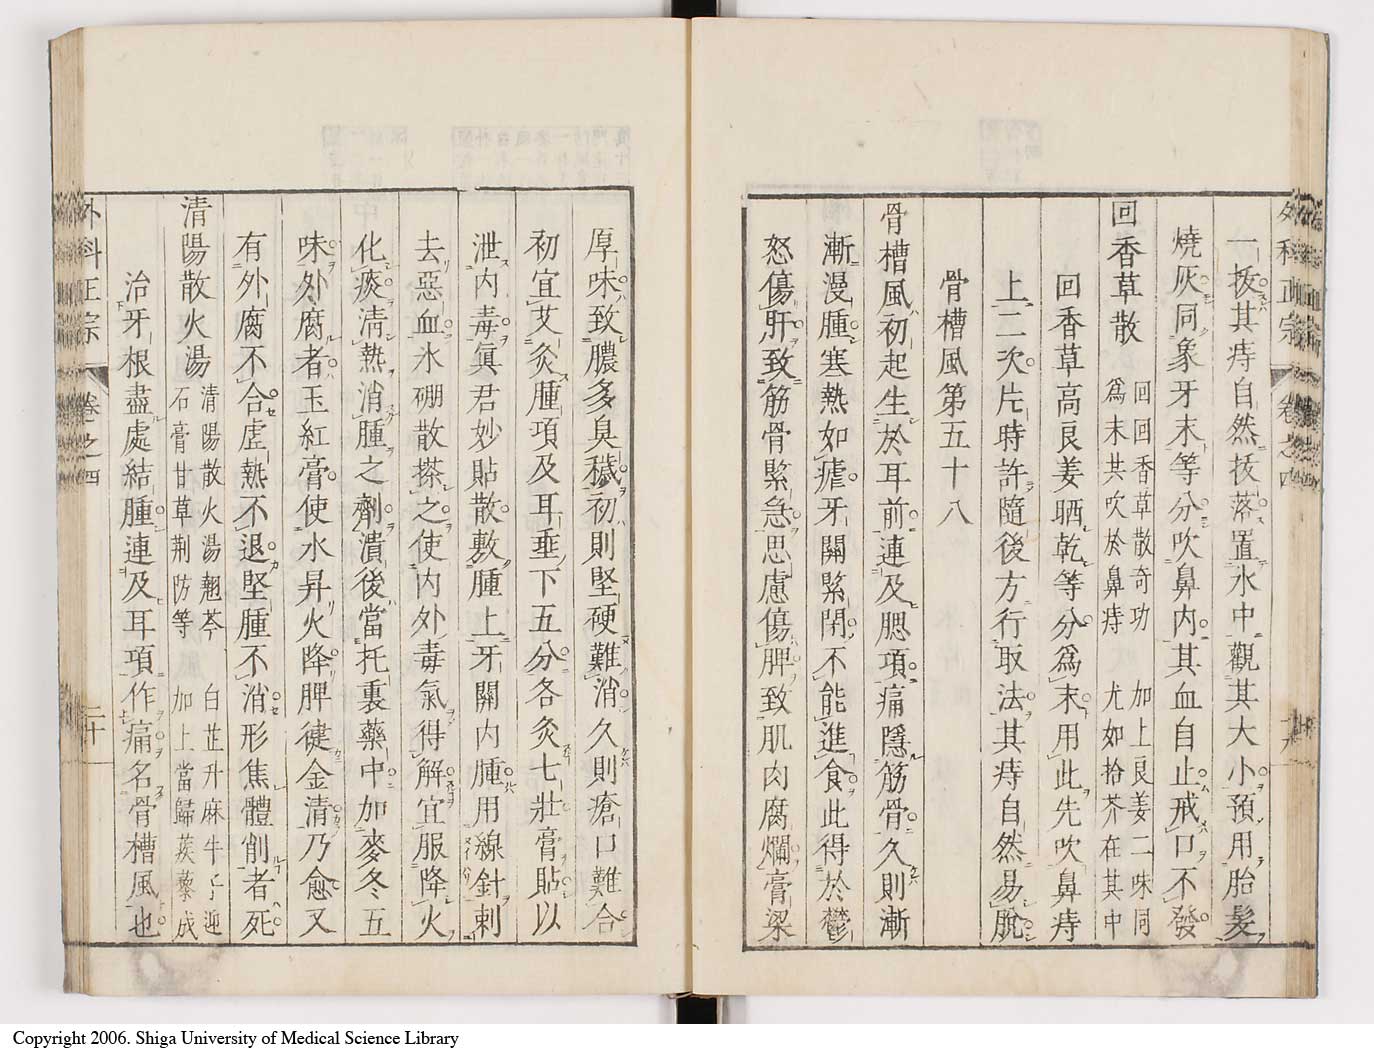 外科正宗 卷之四
一拔其痔自然拔落置水中觀其大小預用胎髮
燒灰同象牙末等分吹鼻内其血自止戒口不發
回香草散 回回香草散奇功 加上良姜二味同
爲末共吹於鼻痔 尤如拾芥在其中
回香草高良姜晒乾等分爲末用此先吹鼻痔
上二次片時許隨後方行取法其痔自然易脫
骨槽風第五十八
骨槽風初起生於耳前連及腮項痛隱筋骨久則漸
漸漫腫寒熱如瘧牙關緊閉不能進食此得於鬱
怒傷肝致筋骨緊急思慮傷脾致肌肉腐爛膏粱
厚味致膿多臭穢初則堅硬難消久則瘡口難合
初宜艾灸腫項及耳垂下五分各灸七壯膏貼以
泄内毒眞君妙貼散敷腫上牙關内腫用線針刺
去惡血氷硼散搽之使内外毒氣得解宜服降火
化痰清熱消腫之劑潰後當托裏藥中加麥冬五
味外腐者玉紅膏使水昇火降脾健金清乃愈又
有外腐不合虛熱不退堅腫不消形焦體削者死
清陽散火湯 清陽散火湯翹芩 白芷升麻牛子迎
石膏甘草荆防等 加上當歸蒺藜成
治牙根盡處結腫連及耳項作痛名骨槽風也
外科正宗 卷之四 二十
Copyright 2006. Shiga University of Medical Science Library